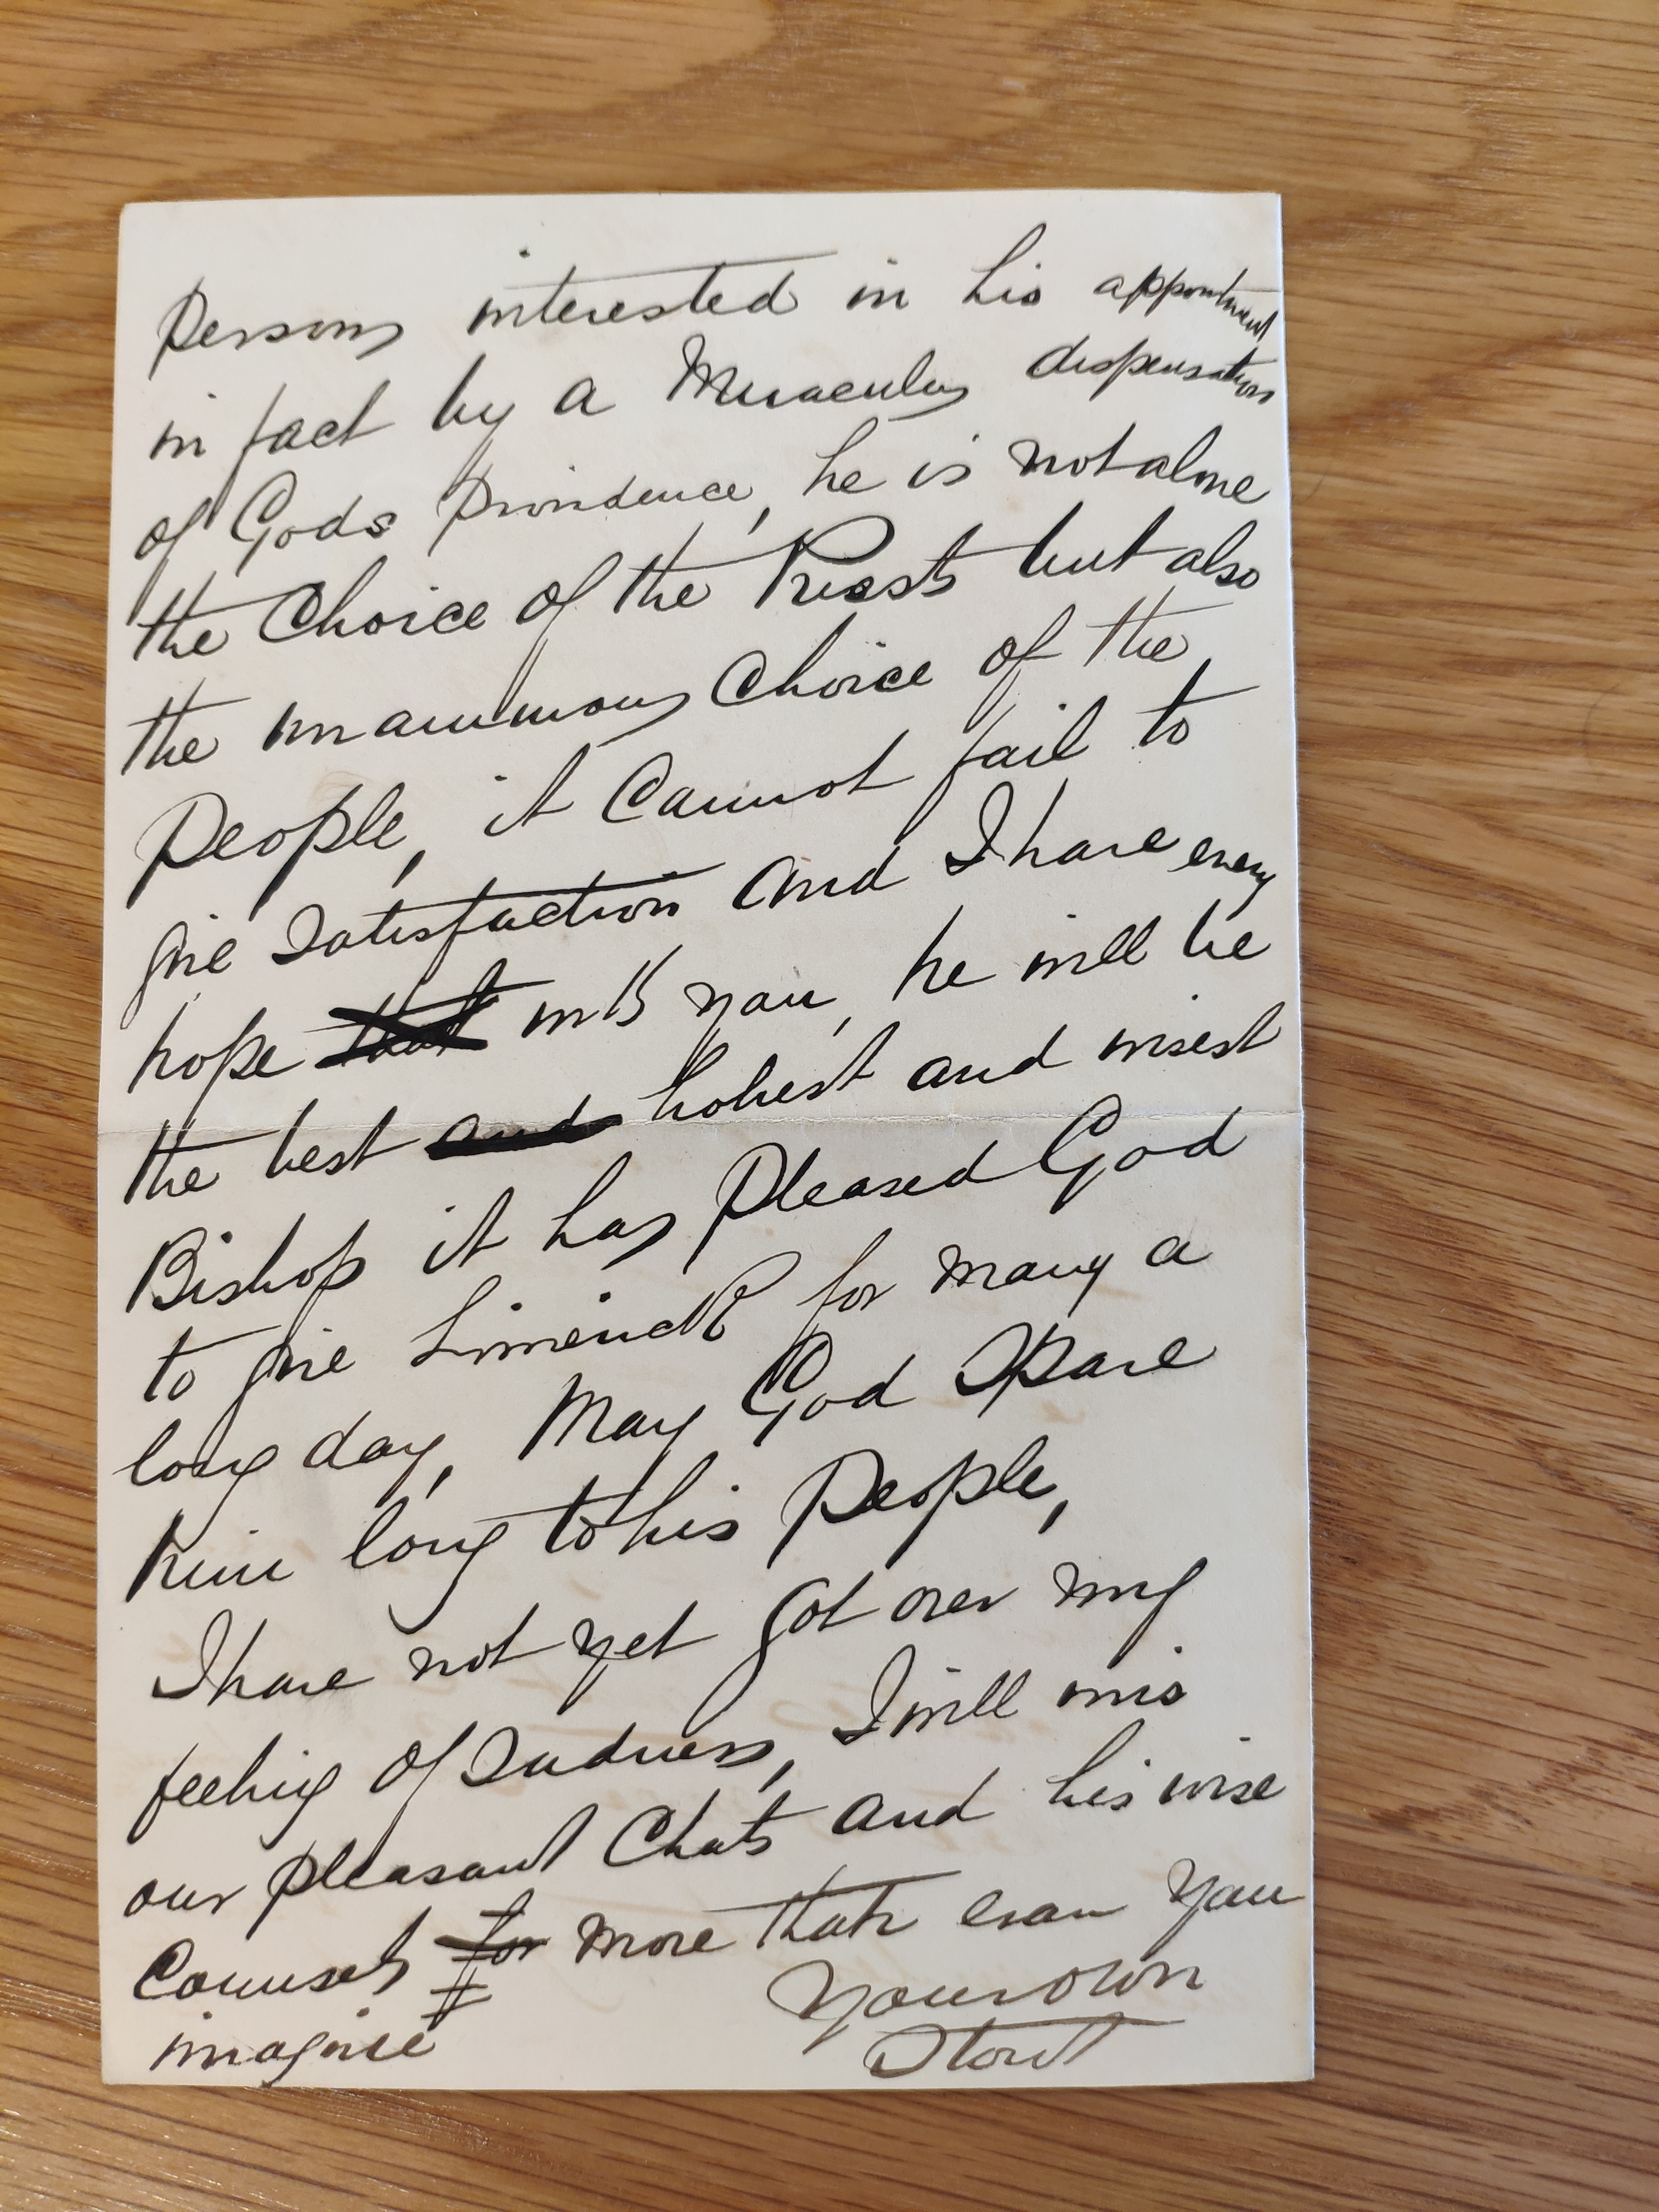 Persons interested in his appointment
in fact by a Muraculus dispensation
of Gods Providence, he is not alone
the Choice of the Priests but also
the unanimous Choice of the
People, it Cannot fail to
give Satisfaction and I have every
hope that with you, he will be
the best and holiest and wisest
Bishop it has Pleased God
to give Limerick for many a
long day, May God Spare
him long to his People,
I have not yet got over my
feeling of Sadness, I will mis
our pleasant Chats and his wise
Counsels for more than even you
imagine Your own
Stout